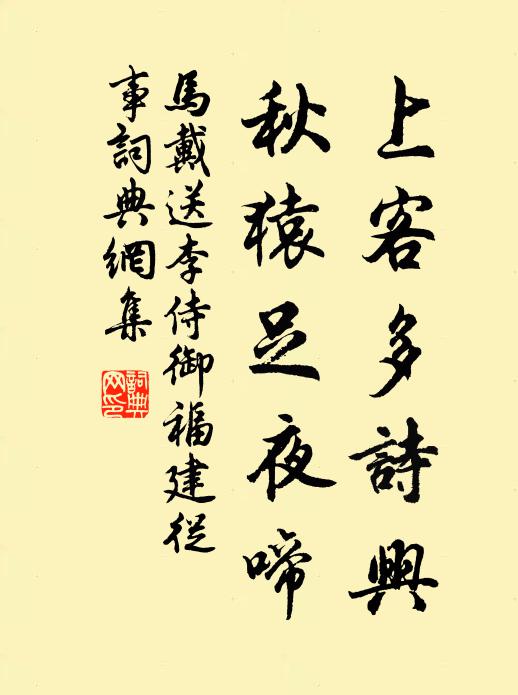 上客多詩興
秋猿足夜啼
馬戴送李侍御福建從
事詞典網集
詞典
网印